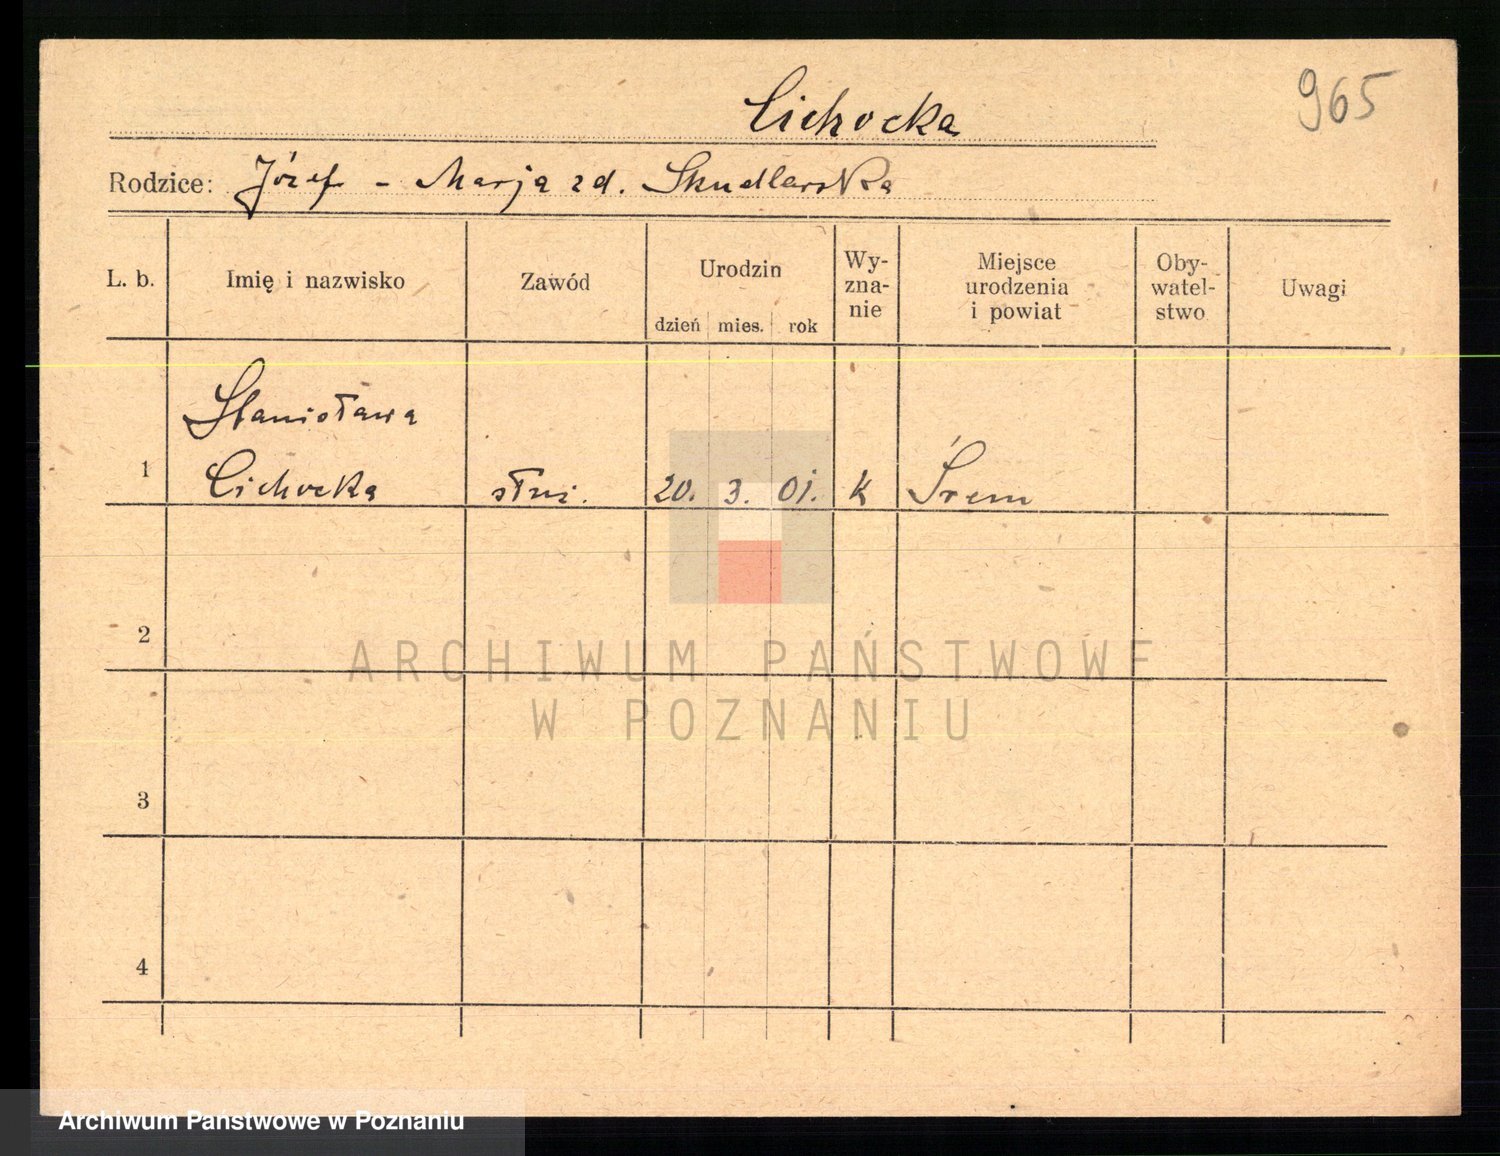 Cichocka
965
Rodzice: Józef - Marja zd. Skudlarska
L. b.
Imię i nazwisko
Zawód
Urodzin
dzień mies. rok
Wy-
zna-
nie
Miejsce
urodzenia
i powiat
Oby-
watel-
stwo
Uwagi
Stanisława
1 Cichocka służ. 20. 3. 01. k Śrem
2
ARCHIWUM PAŃSTWOWE
W POZNANIU
3
4
Archiwum Państwowe w Poznaniu